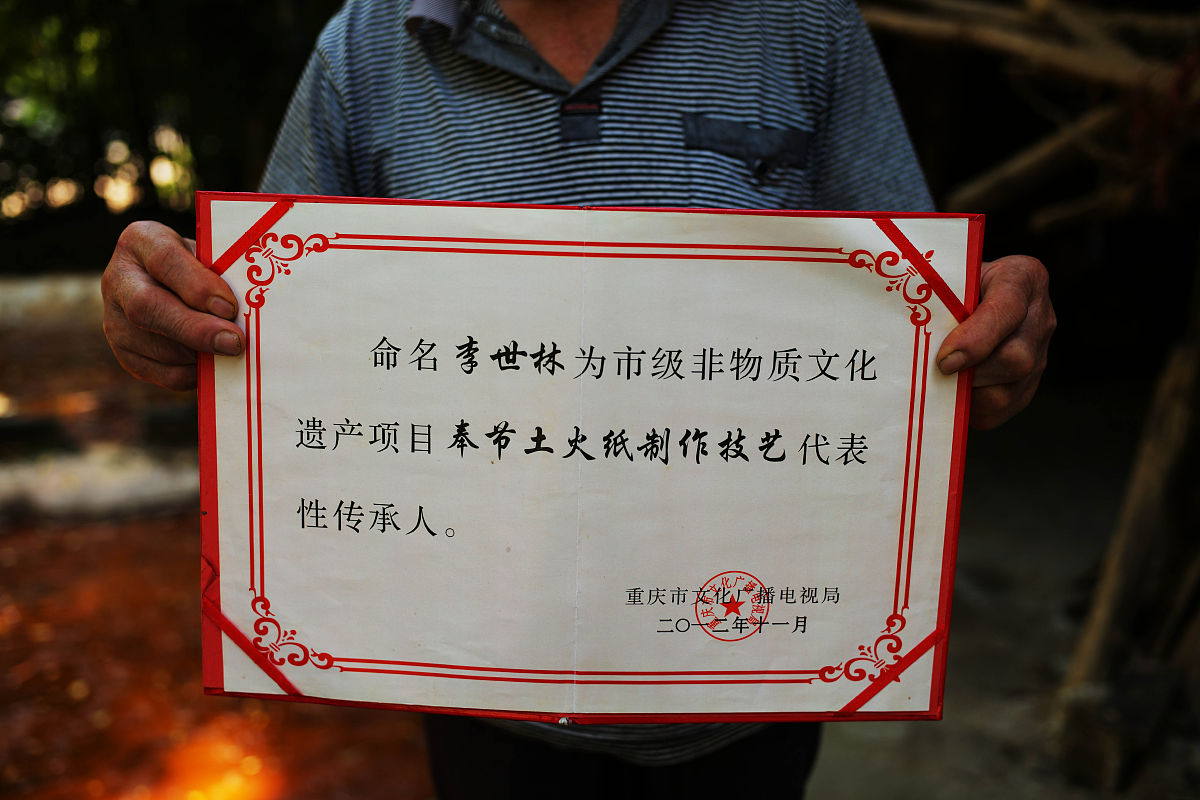 命名李世林为市级非物质文化
遗产项目奉节土火纸制作技艺代表
性传承人。
重庆市文化广播电视局
二〇一二年十一月
重庆市文化广播电视局